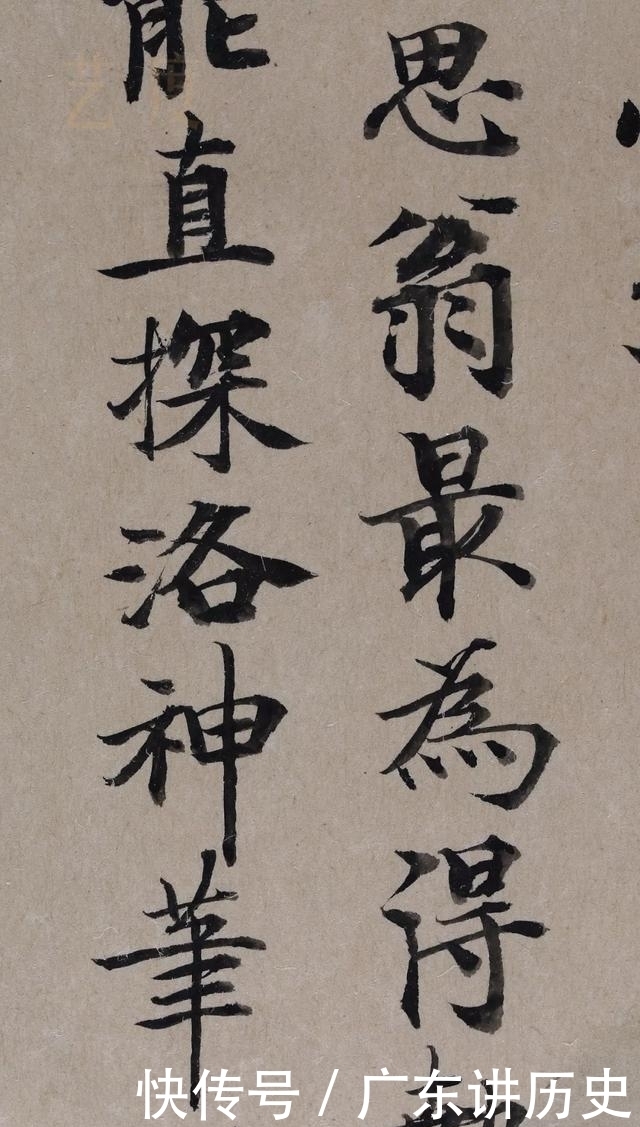 思翁最為得
能直探洛神筆
艺度
快传号/广东讲历史